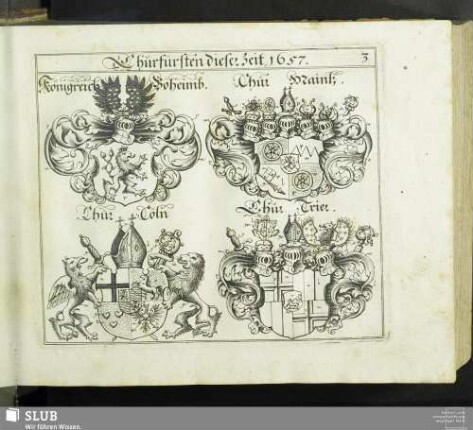 Churfürsten dieser Zeit 1657.
3
Königreich Boheimb.
Chur Maintz.
Chur Cöln
Chur Trier.
SLUB
Wir führen Wissen.